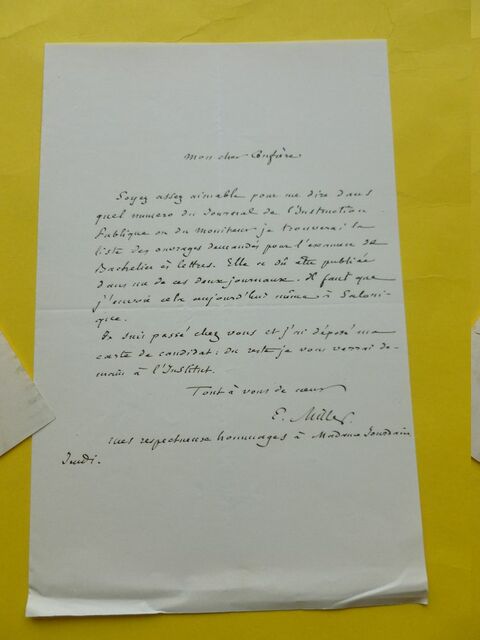 Mon cher Confrère
Soyez assez aimable pour me dire dans
quel numero du Journal de l'Instruction
Publique ou du Moniteur je trouverai la
liste des ouvrages demandés pour l'examen de
Bachelier ès lettres. Elle a dû être publiée
dans un de ces deux journaux. Il faut que
j'envoie cela aujourd'hui même à Saloni-
que.
Je suis passé chez vous et j'ai déposé ma
carte de candidat : du reste je vous verrai de-
main à l'Institut.
Tout à vous de cœur
E. Miller
mes respectueux hommages à Madame Jourdain
Jeudi.